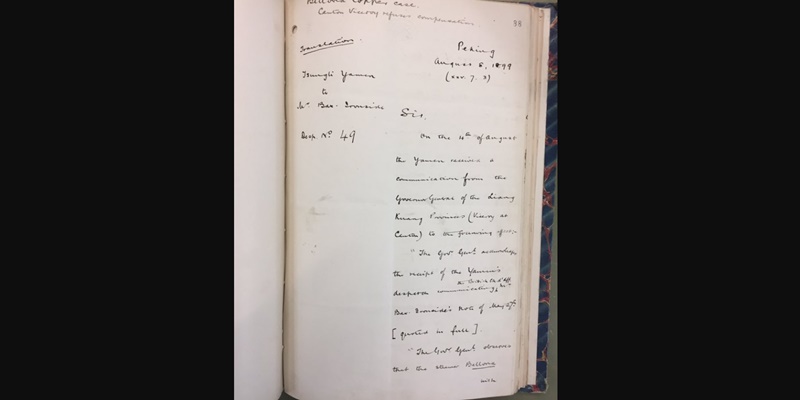 Bellona Copper case.
Canton Viceroy refuses compensation.
88
Translation.
Peking
August 5, 1899
Tsungli Yamen
to
Mr Bax-Ironside
Desp. No. 49
Sir,
On the 4th of August
the Yamen received a
communication from the
Governor General of the Liang
Kuang Provinces (Viceroy at
Canton) to the following
"The Govr Genl acknowledges
the receipt of the Yamen's
despatch communicating Mr
Bax-Ironside's note of May
[quoted in full].
"The Govr Genl observes
that the steamer Bellona
with